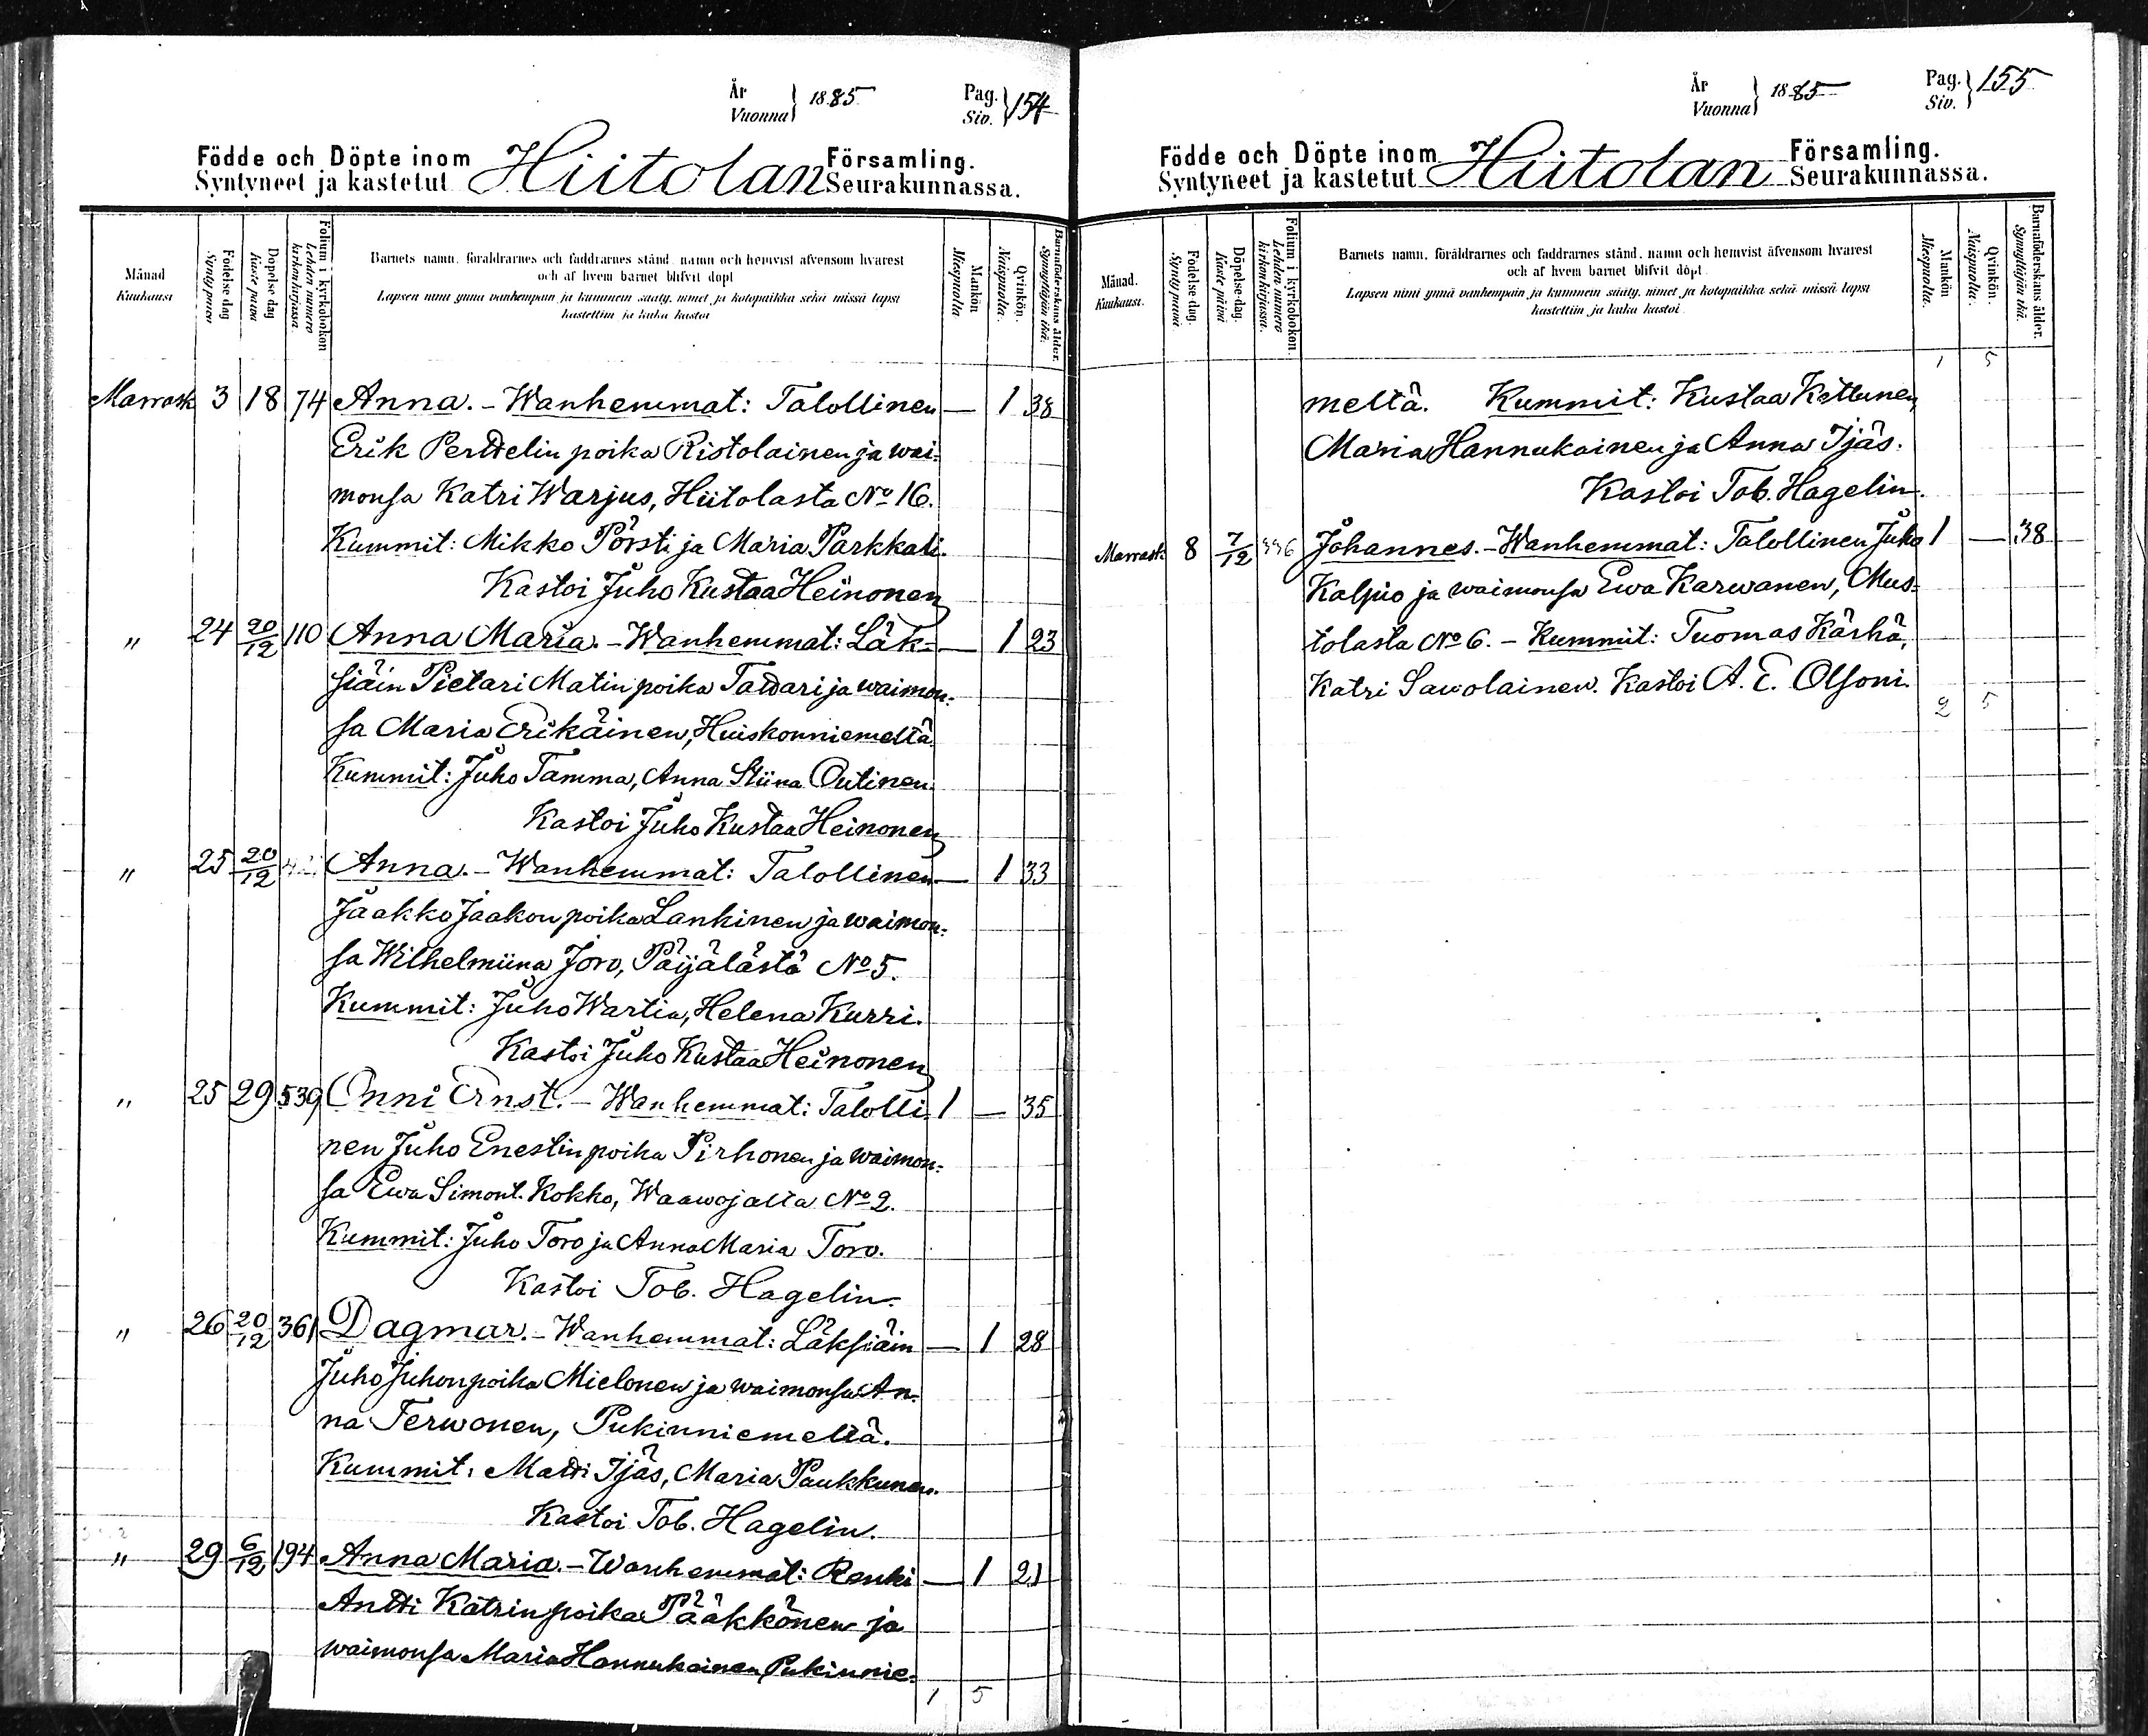 År
Vuonna } 1885
Pag.
Siv. } 154
Födde och Döpte inom Hiitolan Församling.
Syntyneet ja kastetut Seurakunnassa.
Månad
Kuukausi
Födelse dag
Synty päivä
Döpelse dag
Kaste päivä
Folium i kyrkoboken
Lehden numero kirkonkirjassa.
Barnets namn, föräldrarnes och faddrarnes stånd, namn och hemvist äfvensom hvarest
och af hvem barnet blifvit döpt
Lapsen nimi ynnä vanhempain ja kummein sääty, nimet ja kotopaikka sekä missä lapsi
kastettiin ja kuka kastoi
Mankön
Miespuolia
Qvinkön.
Naispuolia.
Barnaföderskans ålder.
Synnyttäjän ikä.
Marrask 3 18 74 Anna. - Wanhemmat: Talollinen — 1 38
Erik Perttelin poika Ristolainen ja wai-
monsa Katri Warjus, Hiitolasta No 16.
Kummit: Mikko Pörsti ja Maria Parkkali.
Kastoi Juho Kustaa Heinonen
" 24 20/12 110 Anna Maria. - Wanhemmat: Läk- — 1 23
siäin Pietari Matin poika Tattari ja waimon-
sa Maria Erikäinen, Huiskonniemeltä.
Kummit: Juho Tamma, Anna Stiina Outinen.
Kastoi Juho Kustaa Heinonen
" 25 20/12 Anna. - Wanhemmat: Talollinen — 1 33
Jaakko Jaakon poika Lankinen ja waimon-
sa Wilhelmiina Joro, Päijälästä No 5.
Kummit: Juho Wartia, Helena Kurri.
Kastoi Juho Kustaa Heinonen
" 25 29 539 Onni Ernst. - Wanhemmat: Talolli- 1 — 35
nen Juho Enestin poika Pirhonen ja waimon-
sa Ewa Simont. Kokko, Waawojalta No 2.
Kummit: Juho Toro ja Anna Maria Toro.
Kastoi Tob. Hagelin.
" 26 20/12 361 Dagmar. - Wanhemmat: Läksiäin — 1 28
Juho Juhonpoika Mielonen ja waimonsa An-
na Terwonen, Pukinniemeltä.
Kummit: Matti Ijäs, Maria Paukkunen.
Kastoi Tob. Hagelin.
" 29 6/12 194 Anna Maria. - Wanhemmat: Renki — 1 21
Antti Katrinpoika Pääkkönen ja
waimonsa Maria Hannukainen Pukinnie-
1 5
År
Vuonna } 1885
Pag.
Siv. } 155
Födde och Döpte inom Hiitolan Församling.
Syntyneet ja kastetut Seurakunnassa.
Månad.
Kuukausi.
Födelse dag.
Synty päivä
Döpelse-dag.
Kaste päivä
Folium i kyrkoboken.
Lehden numero kirkonkirjassa.
Barnets namn, föräldrarnes och faddrarnes stånd, namn och hemvist äfvensom hvarest
och af hvem barnet blifvit döpt.
Lapsen nimi ynnä vanhempain ja kummein sääty, nimet ja kotopaikka sekä missä lapsi
kastettiin ja kuka kastoi.
Mankön
Miespuolia.
Qvinkön.
Naispuolia.
Barnaföderskans ålder.
Synnyttäjän ikä.
1 5
meltä. Kummit: Kustaa Kittunen,
Maria Hannukainen ja Anna Ijäs.
Kastoi Tob. Hagelin.
Marrask 8 7/12 Johannes. - Wanhemmat: Talollinen Juho 1 — 38
Kalpio ja waimonsa Ewa Karwanen, Mus-
tolasta No 6. - Kummit: Tuomas Kärhä,
Katri Sawolainen. Kastoi A. E. Olsoni.
2 5